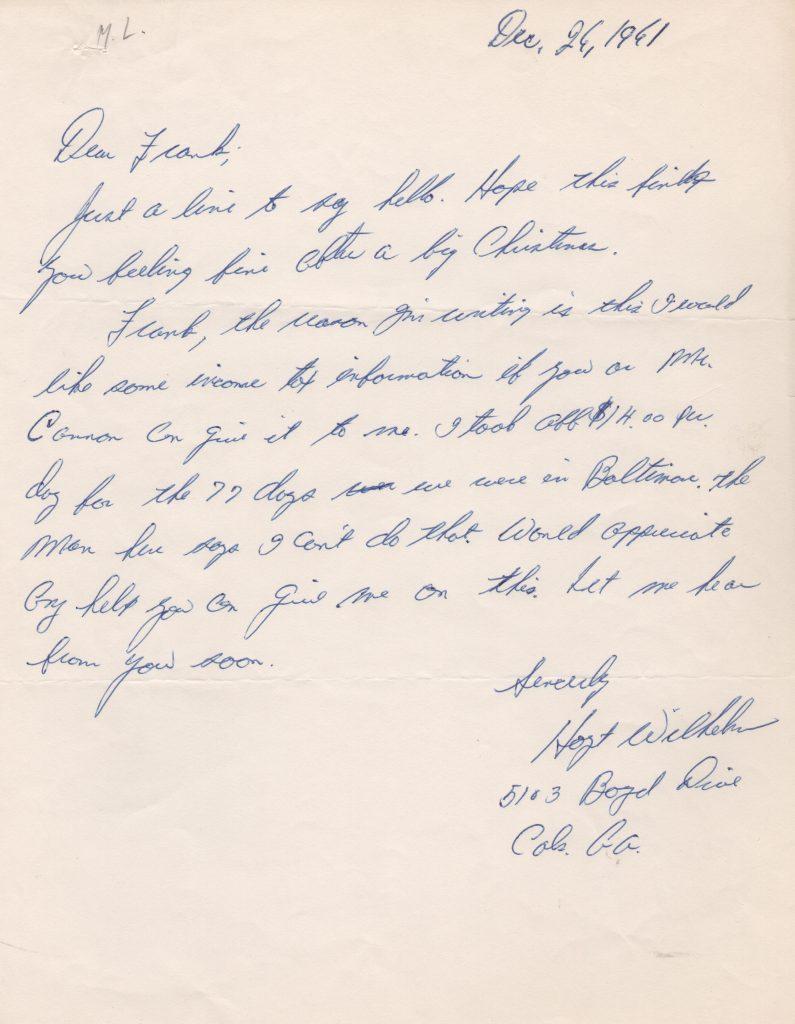 M. L.
Dec. 26, 1961
Dear Frank,
Just a line to say hello. Hope this finds
you feeling fine after a big Christmas.
Frank, the reason I'm writing is this I would
like some income tax information if you or Mr.
Cannon can give it to me. I took off $14.00 per.
day for the 77 days we were in Baltimore. The
man here says I can't do that. Would appreciate
any help you can give me on this. Let me hear
from you soon.
Sincerely
Hoyt Wilhelm
5103 Boyd Drive
Cols. GA.